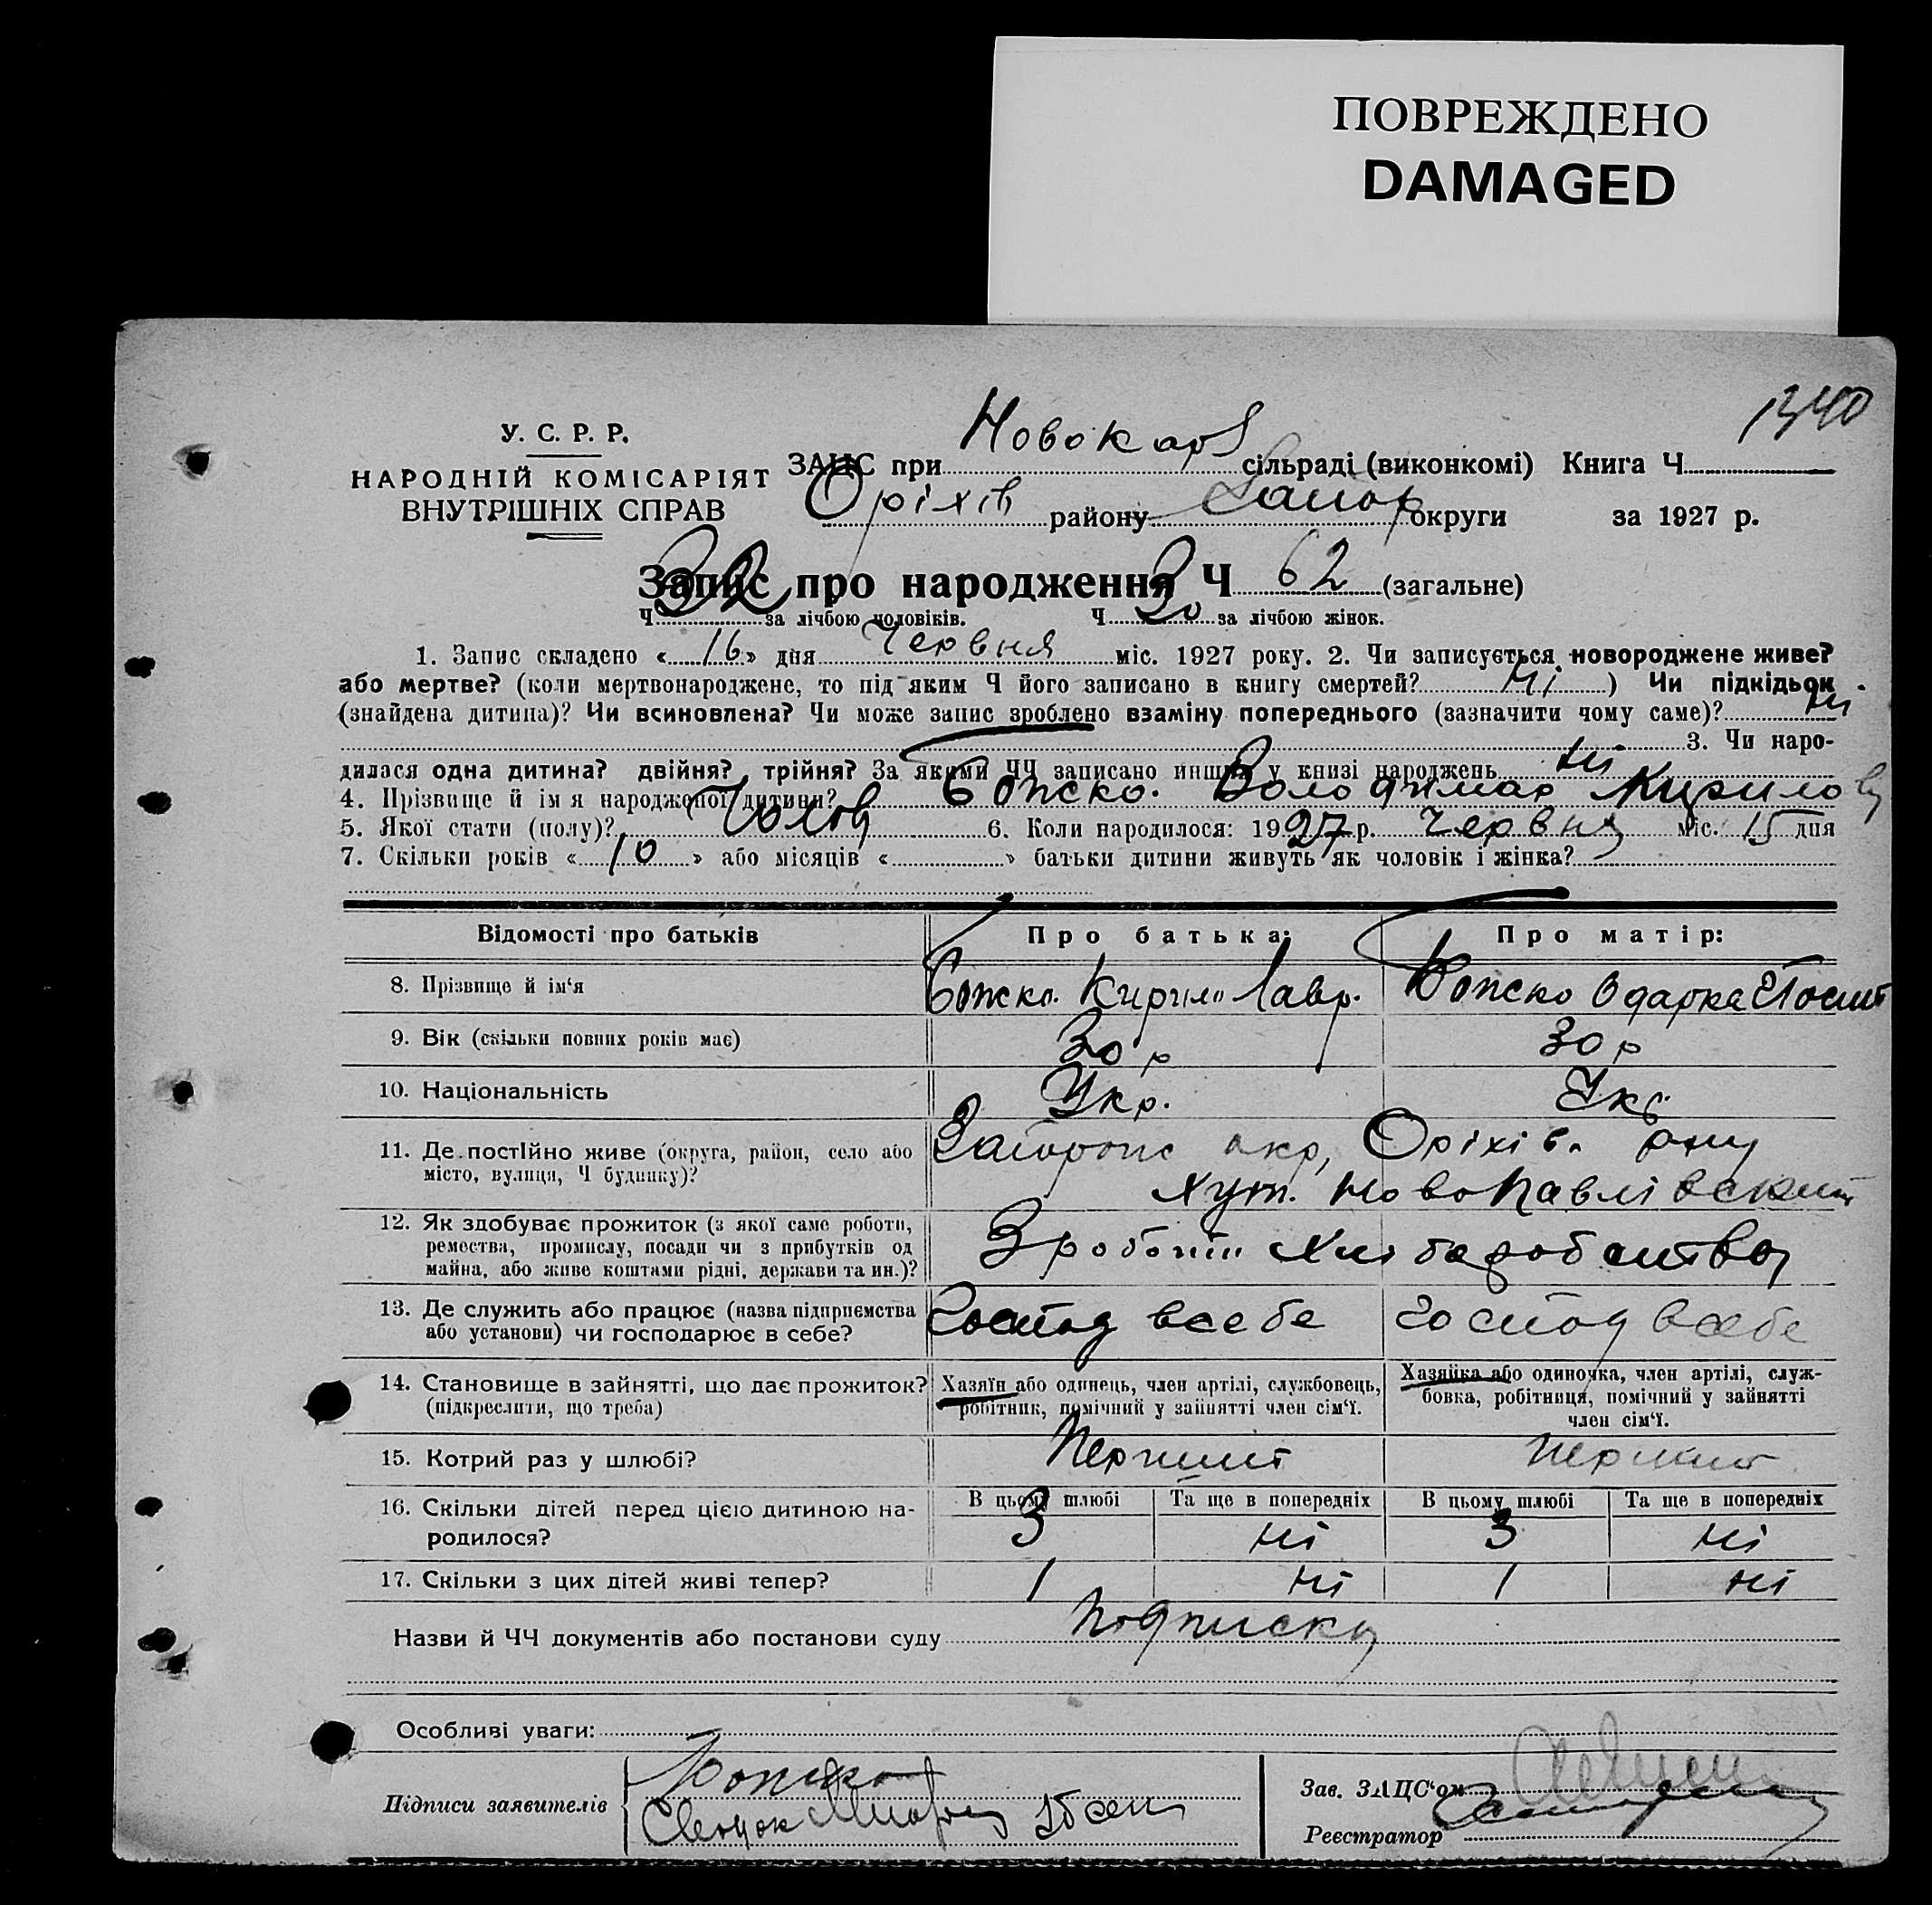 ПОВРЕЖДЕНО
DAMAGED
1340
У. С. Р. Р.
НАРОДНІЙ КОМІСАРІЯТ
ВНУТРІШНІХ СПРАВ
ЗАГС при Новокар сільраді (виконкомі) Книга Ч
Оріхів району Запор округи за 1927 р.
Запис про народження Ч 62 (загальне)
Ч 32 за лічбою чоловіків. Ч 30 за лічбою жінок.
1. Запис складено « 16 » дня Червня міс. 1927 року. 2. Чи записується новороджене живе?
або мертве? (коли мертвонароджене, то під яким Ч його записано в книгу смертей? Ні ) Чи підкідьок
(знайдена дитина)? Чи всиновлена? Чи може запис зроблено взаміну попереднього (зазначити чому саме)? Ні
3. Чи наро-
дилася одна дитина? двійня? трійня? За якими ЧЧ записано инших у книзі народжень Ні
4. Прізвище й ім я народженої дитини? Божко. Володимар Кирилов
5. Якої стати (полу)? Чолов 6. Коли народилося: 1927 р. Червня міс. 15 дня
7. Скільки років « 10 » або місяців « » батьки дитини живуть як чоловік і жінка?
Відомості про батьків Про батька: Про матір:
8. Прізвище й ім‘я Божко. Кирило Лавр. Божко Одарка
9. Вік (скільки повних років має) 30 р 30 р
10. Національність Укр. Укр.
11. Де постійно живе (округа, район, село або Запорож окр, Оріхів. рону
місто, вулиця, Ч будинку)? Хут. Новопавлівский
12. Як здобуває прожиток (з якої саме роботи,
ремества, промислу, посади чи з прибутків од З роботи Хліборобства
майна, або живе коштами рідні, держави та ин.)?
13. Де служить або працює (назва підприємства Господ всебе Господ всебе
або установи) чи господарює в себе?
14. Становище в зайнятті, що дає прожиток? Хазяїн або одинець, член артілі, службовець, Хазяйка або одиночка, член артілі, служ-
(підкреслити, що треба) робітник, помічний у зайнятті член сім‘ї. бовка, робітниця, помічний у зайнятті
член сім‘ї.
15. Котрий раз у шлюбі? Перший Перший
16. Скільки дітей перед цією дитиною на- В цьому шлюбі Та ще в попередніх В цьому шлюбі Та ще в попередніх
родилося? 3 Ні 3 Ні
17. Скільки з цих дітей живі тепер? 1 Ні 1 Ні
Назви й ЧЧ документів або постанови суду Подписку
Особливі уваги:
Підписи заявителів Божко
Зав. ЗАЦС‘ом
Реєстратор